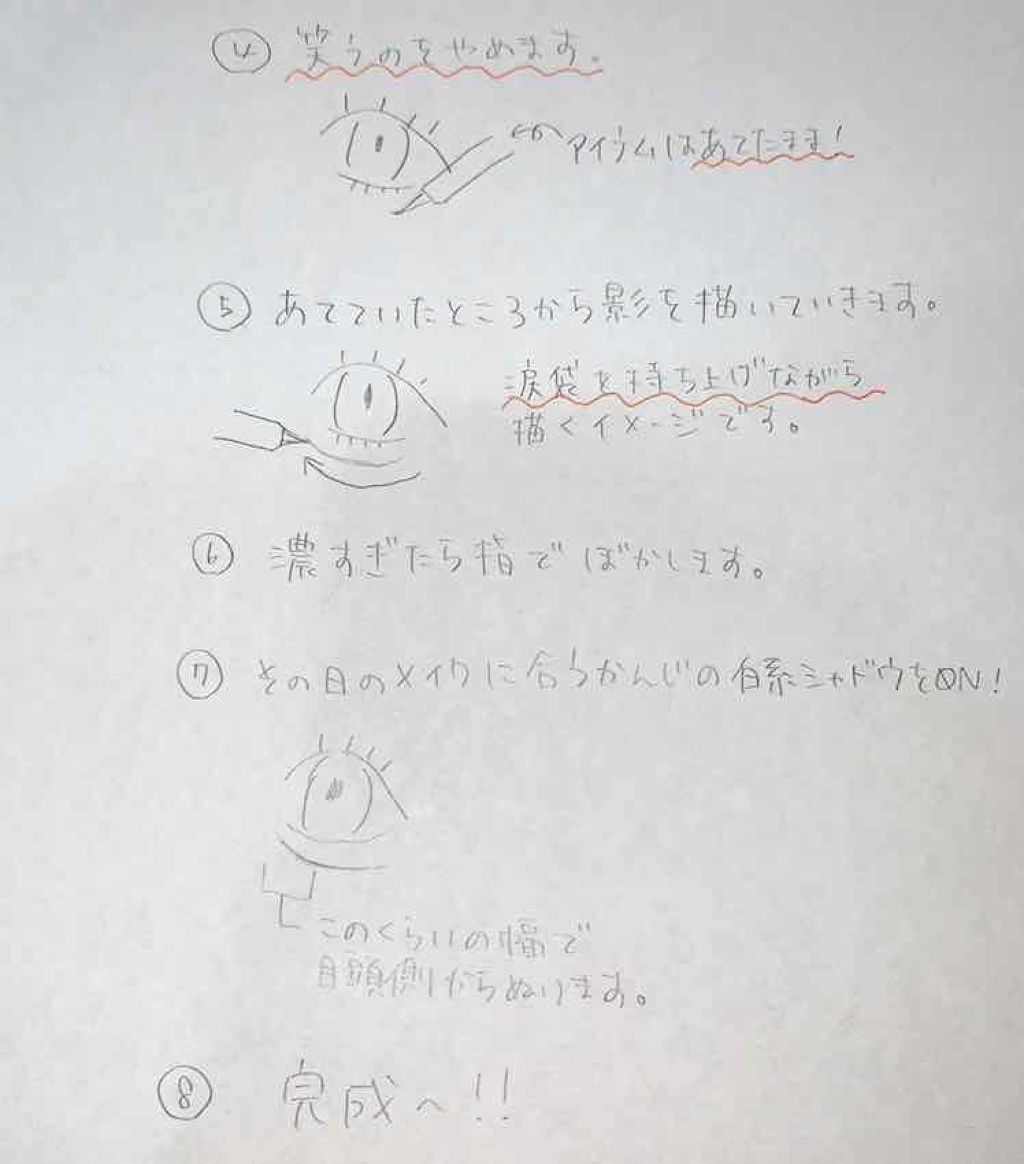 ④ 笑うのをやめます。
アイテムはあてたまま!
⑤ あてていたところから影を描いていきます。
涙袋を持ち上げながら
描くイメージです。
⑥ 濃すぎたら指でぼかします。
⑦ その日のメイクに合うかんじの白系シャドウをON!
このくらいの幅で
目頭側からぬります。
⑧ 完成へ!!